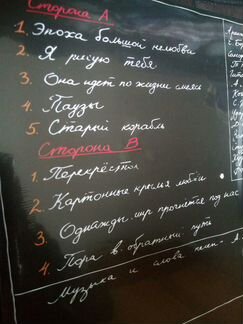 Сторона А
1. Эпоха большой нелюбви
2. Я рисую тебя
3. Она идет по жизни смеясь
4. Паузы
5. Старый корабль
Сторона В
1. Перекрёсток
2. Картонные крылья любви
3. Однажды мир прогнется под нас
4. Пора в обратный путь
Музыка и слова песен - А.